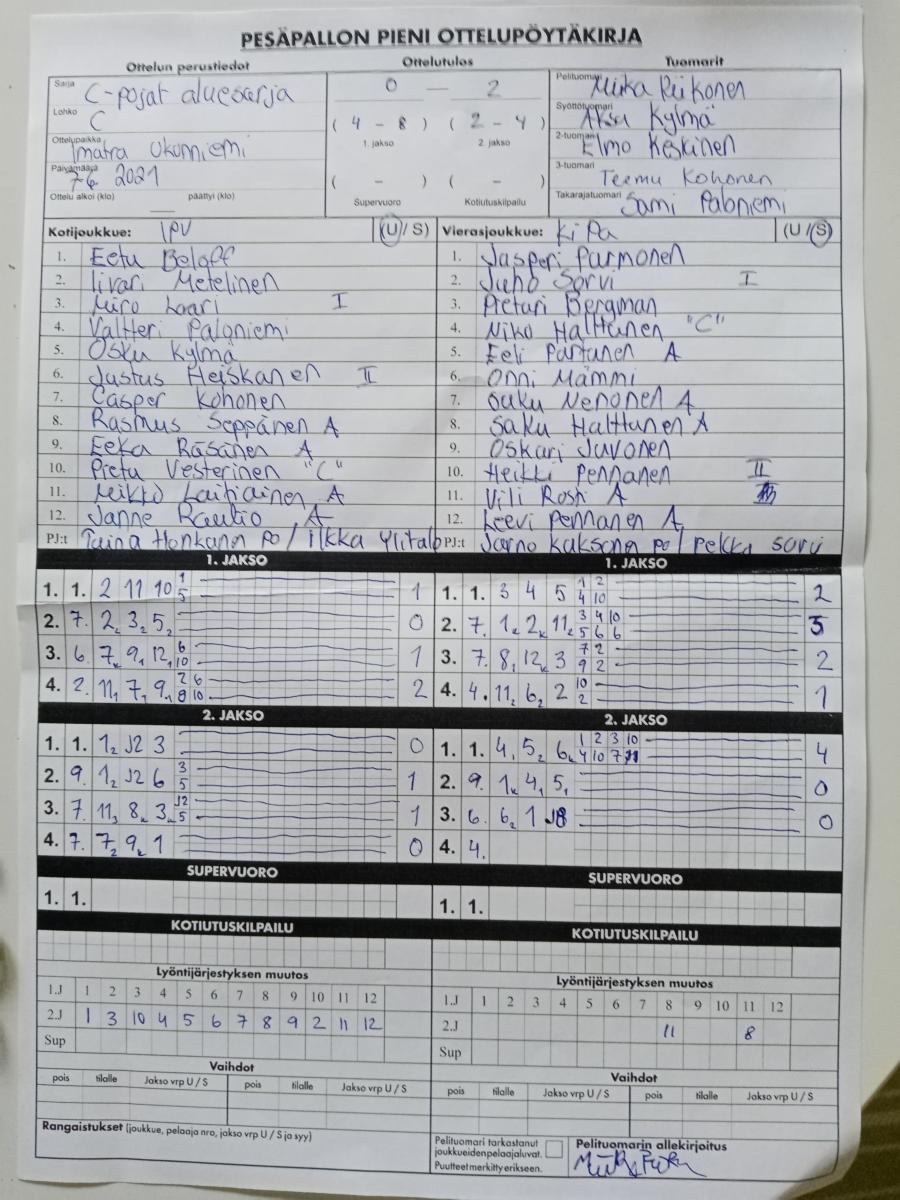 PESÄPALLON PIENI OTTELUPÖYTÄKIRJA
Ottelun perustiedot Ottelutulos Tuomarit
Sarja C-pojat aluesarja
Lohko C
Ottelupaikka Imatra Ukonniemi
Päivämäärä 7.6. 2021
Ottelu alkoi (klo) päättyi (klo)
0 — 2
( 4 - 8 ) ( 2 - 4 )
1. jakso 2. jakso
( - ) ( - )
Supervuoro Kotiutuskilpailu
Pelituomari Miika Riikonen
Syöttötuomari Aksu Kylmä
2-tuomari Elmo Keskinen
3-tuomari Teemu Kohonen
Takarajatuomari Sami Paloniemi
Kotijoukkue: IPV (U / S)
1. Eetu Beloff
2. Iivari Metelinen
3. Miro Laari I
4. Valtteri Paloniemi
5. Osku Kylmä
6. Justus Heiskanen II
7. Casper Kohonen
8. Rasmus Seppänen A
9. Eeka Räsänen A
10. Pietu Vesterinen "C"
11. Mikko Laitiainen A
12. Janne Rautio A
PJ:t Taina Honkann po / ilkka ylitalo
Vierasjoukkue: KiPa (U / S)
1. Jasperi Parmonen
2. Juho Sorvi I
3. Pietari Bergman
4. Niko Halttunen "C"
5. Eeli Partanen A
6. Onni Mämmi
7. Oaku Nenonen A
8. Saku Halttunen A
9. Oskari Juvonen
10. Heikki Pennanen II
11. Vili Rosti A
12. Leevi Pennanen A
PJ:t Jarno Kaksonen po / pekka sorvi
1. JAKSO
1. 1. 2 11 10 1 5 1
2. 7. 2 2 3 2 5 2 0
3. 6. 7 x 9 1 12 1 6 10 1
4. 2. 11 1 7 1 9 1 2 6 8 10 2
1. JAKSO
1. 1. 3 4 5 1 2 4 10 2
2. 7. 1 2 2 x 11 2 3 4 10 5 6 6 3
3. 7. 8 1 12 x 3 7 2 9 2 2
4. 4. 11 1 6 2 2 10 2 1
2. JAKSO
1. 1. 1 2 J2 3 0
2. 9. 1 2 J2 6 3 5 1
3. 7. 11 3 8 x 3 x J2 5 1
4. 7. 7 2 9 x 1 0
2. JAKSO
1. 1. 4 1 5 2 6 x 1 2 3 10 4 10 7 11 4
2. 9. 1 x 4 1 5 1 0
3. 6. 6 2 1 J8 0
4. 4.
SUPERVUORO
1. 1.
SUPERVUORO
1. 1.
KOTIUTUSKILPAILU
KOTIUTUSKILPAILU
Lyöntijärjestyksen muutos
1.J 1 2 3 4 5 6 7 8 9 10 11 12
2.J 1 3 10 4 5 6 7 8 9 2 11 12
Sup
Lyöntijärjestyksen muutos
1.J 1 2 3 4 5 6 7 8 9 10 11 12
2.J 11 8
Sup
Vaihdot
pois tilalle Jakso vrp U / S pois tilalle Jakso vrp U / S
Vaihdot
pois tilalle Jakso vrp U / S pois tilalle Jakso vrp U / S
Rangaistukset (joukkue, pelaaja nro, jakso vrp U / S ja syy)
Pelituomari tarkastanut
joukkueidenpelaajaluvat.
Puutteet merkitty erikseen.
Pelituomarin allekirjoitus